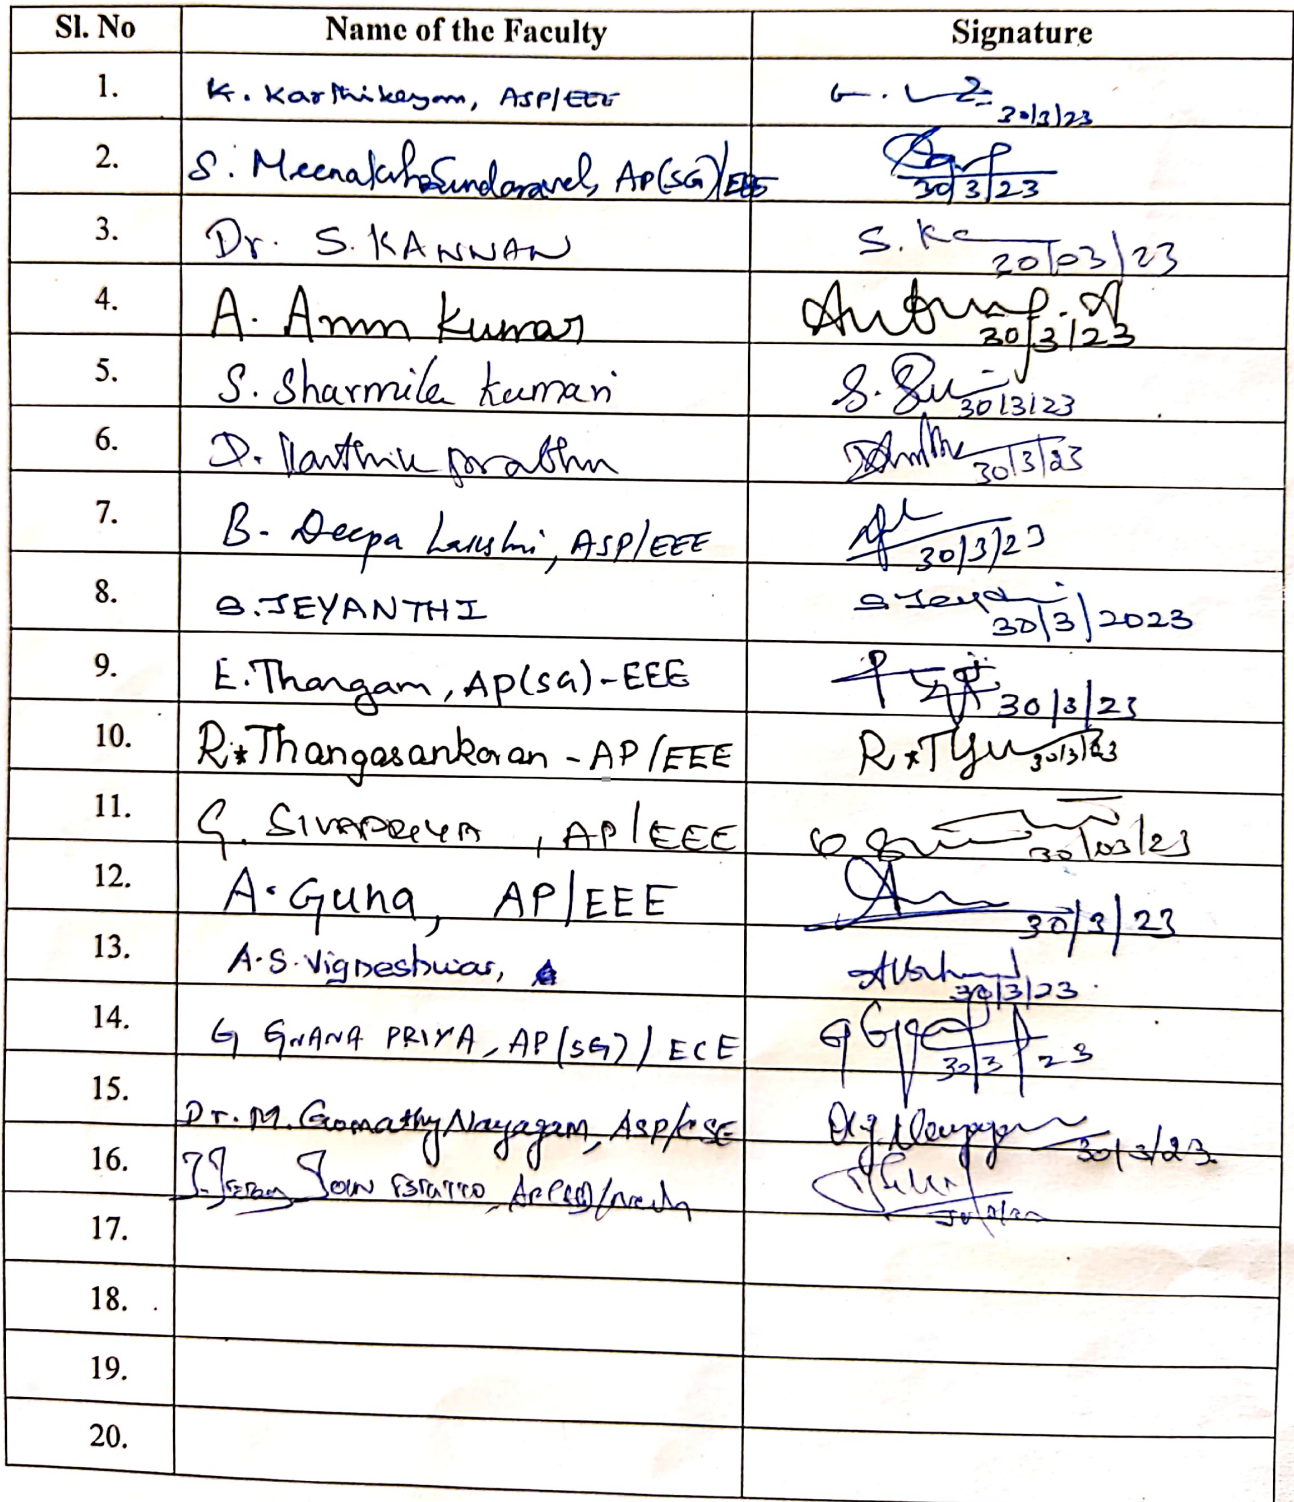 Sl. No Name of the Faculty Signature
1. K. Karthikeyan, ASP/EEE 30/3/23
2. S. MeenakshiSundaravel, AP(SG)/EEE 30/3/23
3. Dr. S. KANNAN S. Ka 30/03/23
4. A. Arun Kumar 30/3/23
5. S. Sharmila Kumari 30/3/23
6. D. Karthik prabhu 30/3/23
7. B. Deepa Lakshmi, ASP/EEE 30/3/23
8. S. JEYANTHI 30/3/2023
9. E. Thangam, AP(SG)-EEE 30/3/23
10. R. Thangasankaran - AP/EEE 30/3/23
11. G. SIVAPRIYA, AP/EEE 30/03/23
12. A. Guna, AP/EEE 30/3/23
13. A.S. Vigneshwar, 30/3/23
14. G GNANA PRIYA, AP(SG)/ECE 30/3/23
15. Dr. M. Gomathy Nayagam, ASP/CSE 30/3/23
16.
17.
18.
19.
20.